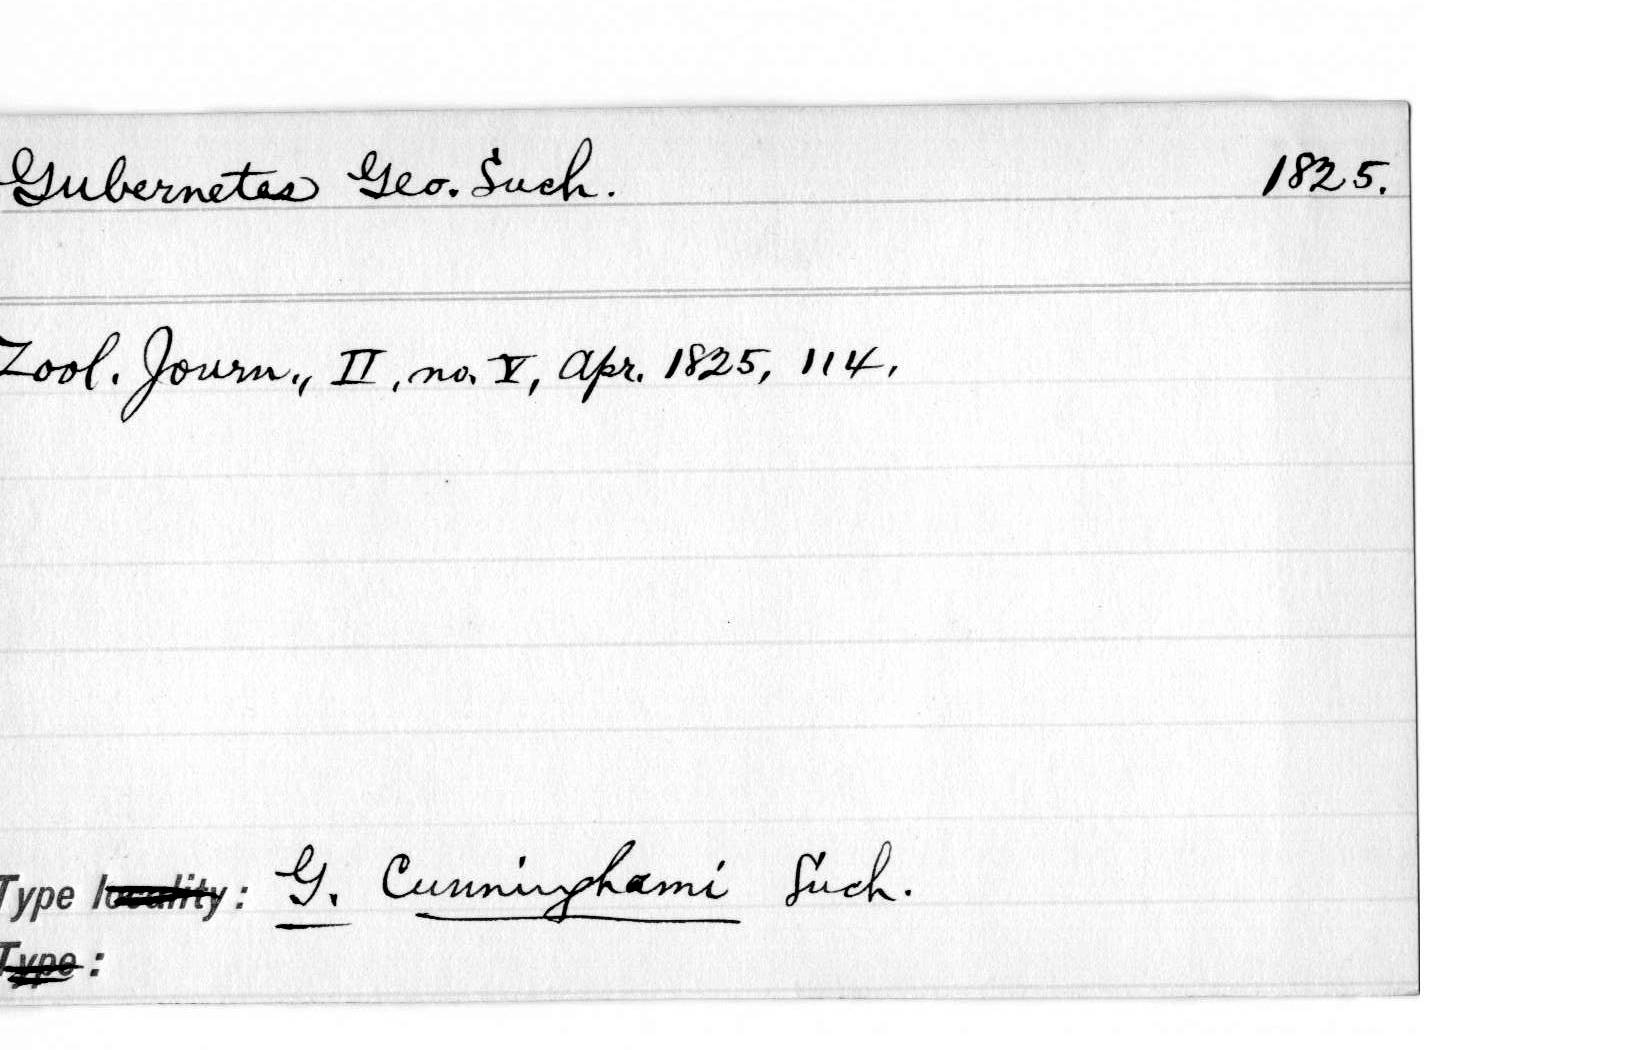 Gubernetes Geo. Such. 1825.
Zool. Journ., II, no. V, Apr. 1825, 114,
Type locality: G. Cunninghami Such.
Type: